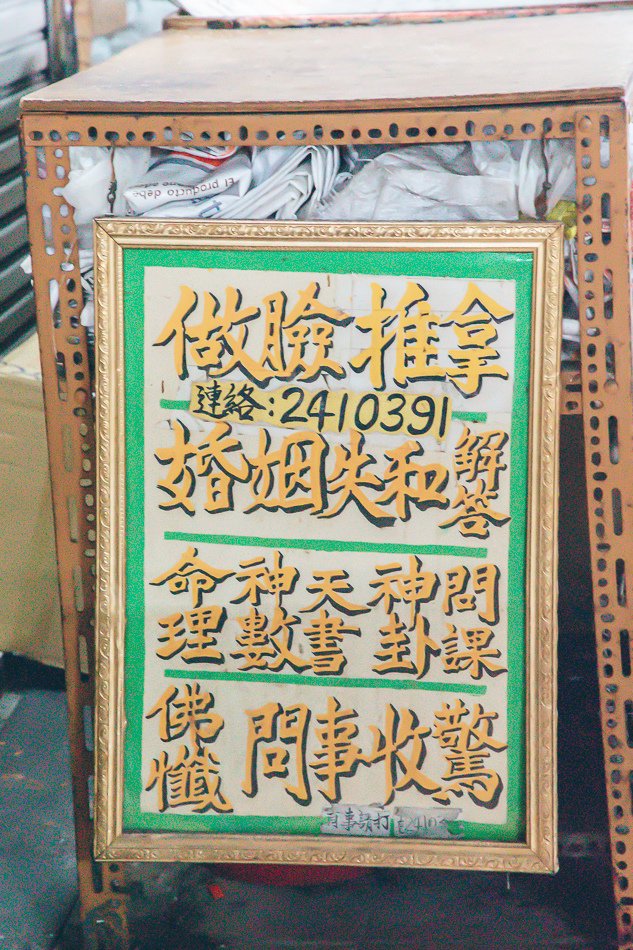 El producto debe
做臉 推拿
連絡:2410391
婚姻失和 解答
命理 神數 天書 神卦 問課
佛懺 問事 收驚
有事請打